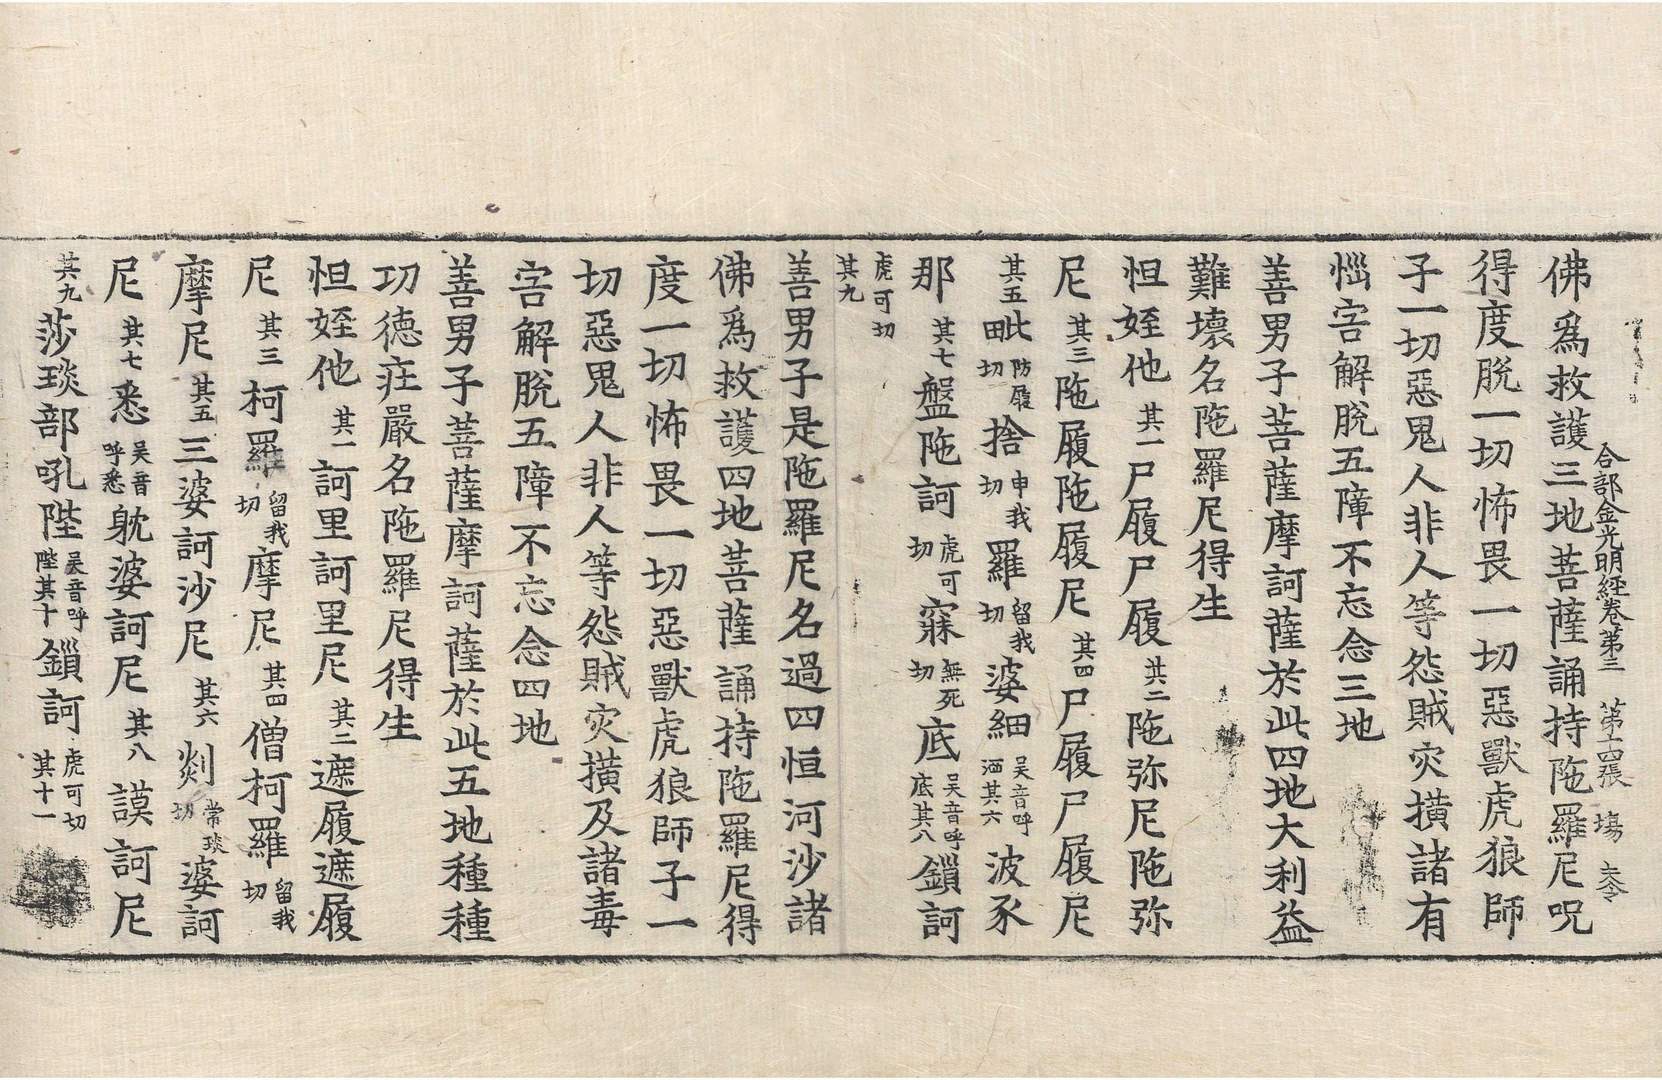 合部金光明經卷第三 第十四張 塲
佛爲救護三地菩薩誦持陁羅尼呪
得度脫一切怖畏一切惡獸虎狼師
子一切惡鬼人非人等怨賊灾撗諸有
惱害解脫五障不忘念三地
善男子菩薩摩訶薩於此四地大利益
難壞名陁羅尼得生
怛姪他其一尸履尸履其二陁弥尼陁弥
尼其三陁履陁履尼其四尸履尸履尼
其五毗防履切捨申我切羅留我切婆細吴音呼洒其六波㒰
那其七盤陁訶虎可切寐無死切底吴音呼底其八鎻訶
虎可切其九
善男子是陁羅尼名過四恒河沙諸
佛爲救護四地菩薩誦持陁羅尼得
度一切怖畏一切惡獸虎狼師子一
切惡鬼人非人等怨賊灾撗及諸毒
害解脫五障不忘念四地
善男子菩薩摩訶薩於此五地種種
功德莊嚴名陁羅尼得生
怛姪他其一訶里訶里尼其二遮履遮履
尼其三柯羅留我切摩尼其四僧柯羅留我切
摩尼其五三婆訶沙尼其六剡常琰切婆訶
尼其七悉吴音呼悉躭婆訶尼其八謨訶尼
其九莎琰部吼陛吴音呼陛其十鎻訶虎可切其十一